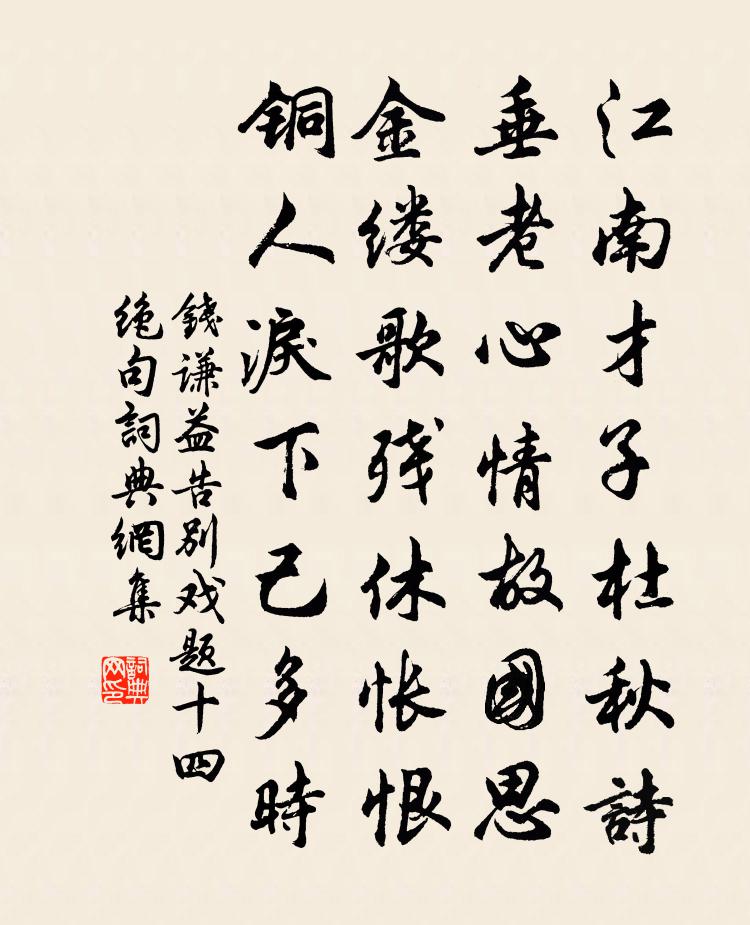 江南才子杜秋詩
垂老心情故國思
金缕歌残休怅恨
銅人淚下已多時
錢谦益告别戏题十四
绝句詞典網集
詞典网印